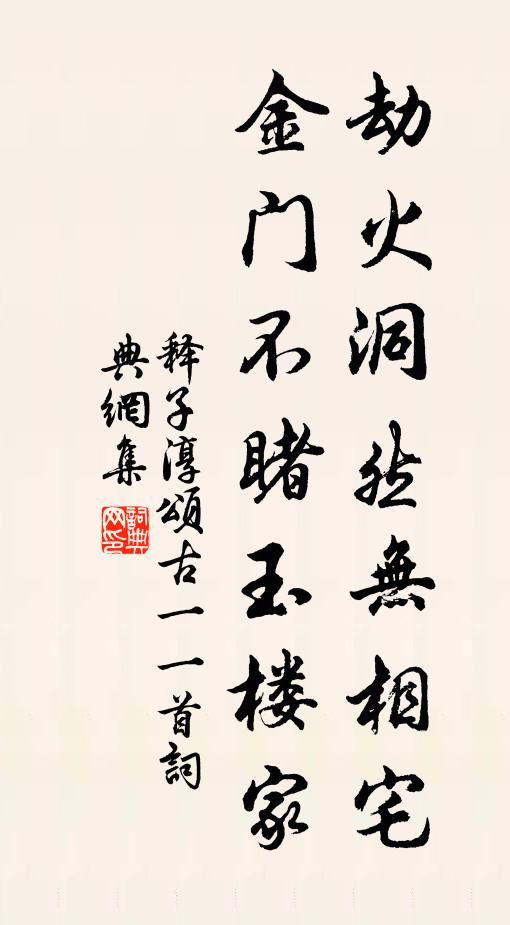 劫火洞然無相宅
金门不睹玉楼家
释子淳頌古一一首詞
典網集
詞典
网印